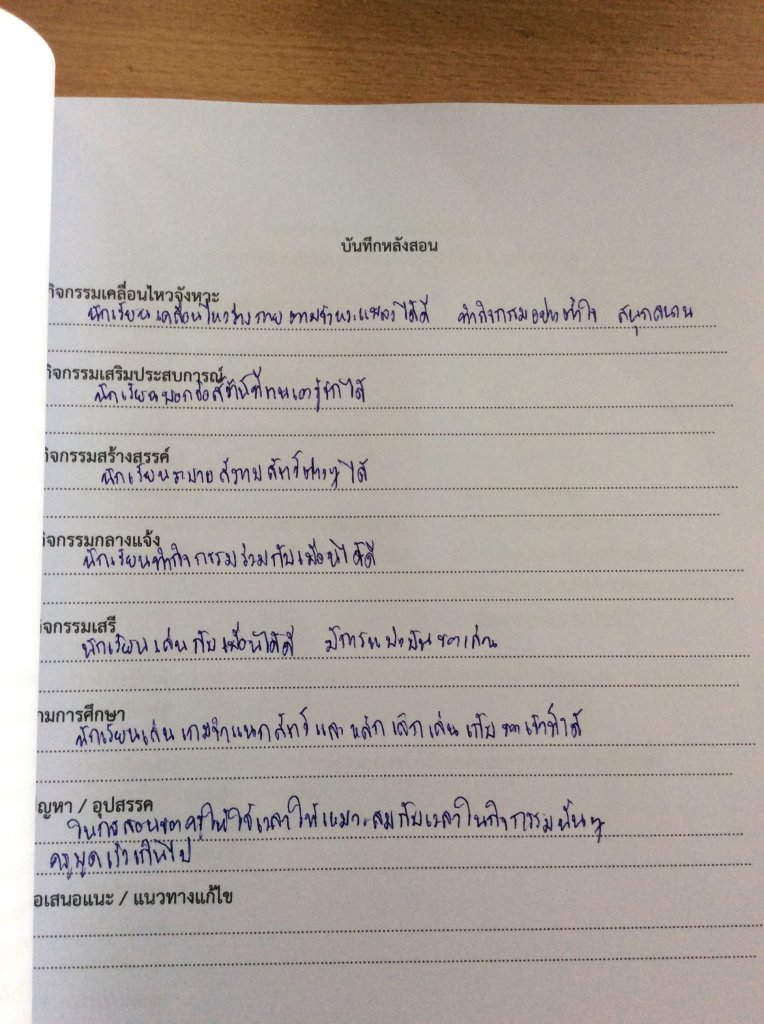 บันทึกหลังสอน
กิจกรรมเคลื่อนไหวจังหวะ
นักเรียนเคลื่อนไหวร่างกายตามจังหวะเพลงได้ดี ทำกิจกรรมอย่างตั้งใจ สนุกสนาน
กิจกรรมเสริมประสบการณ์
นักเรียนบอกชื่อสัตว์ที่ตนเองรู้จักได้
กิจกรรมสร้างสรรค์
นักเรียนระบายสีภาพสัตว์ต่างๆ ได้
กิจกรรมกลางแจ้ง
นักเรียนทำกิจกรรมร่วมกับเพื่อนได้ดี
กิจกรรมเสรี
นักเรียนเล่นกับเพื่อนได้ดี มีการแบ่งปันของเล่น
ามการศึกษา
นักเรียนเล่นเกมจำแนกสัตว์ และ หลังเลิกเล่น เก็บของเข้าที่ได้
ญหา / อุปสรรค
ในการสอนของครูให้ใช้เวลาให้เหมาะสมกับเวลาในกิจกรรมนั้นๆ
ครูพูดเร็วเกินไป
อเสนอแนะ / แนวทางแก้ไข